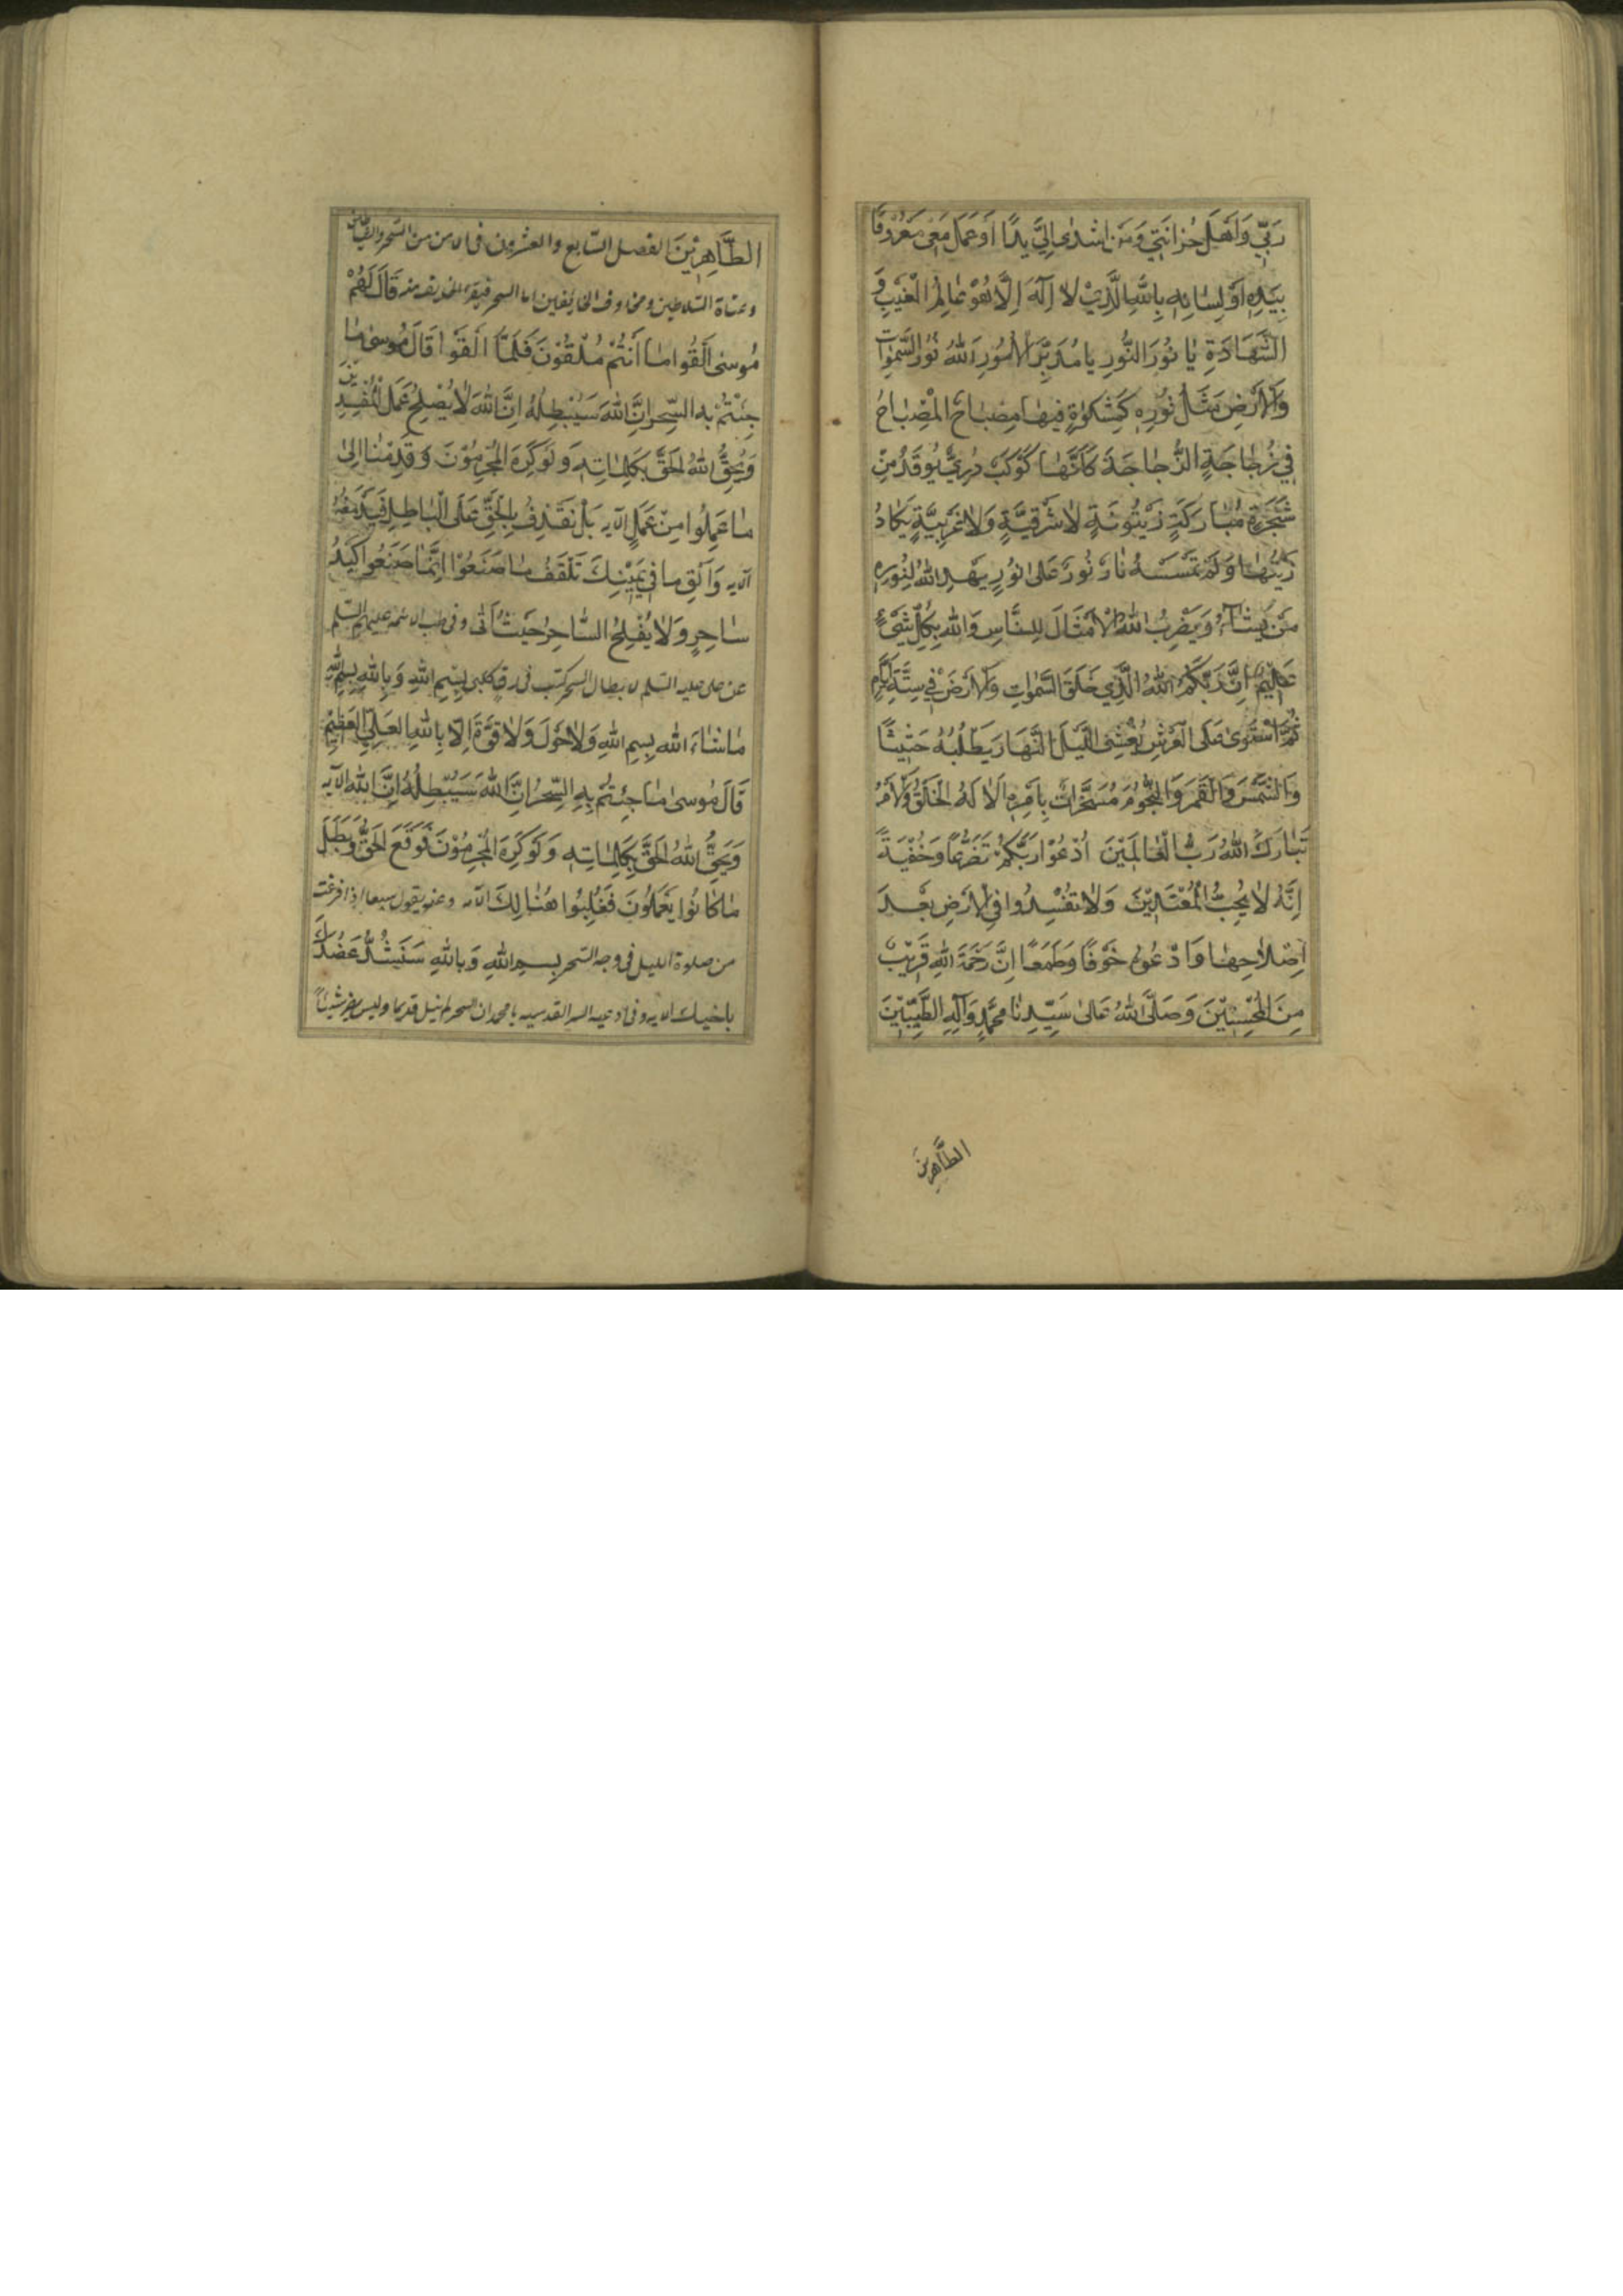 رَبِّي وَاَهْلَ حُزانَتِي وَمَن اَسْدٰى اِلَيَّ يَدًا اَوْعَمَلَ مَعي مَعْرُوفًا
بِيَدِهِ اَوْلِسَانِهِ بِاللهِ الَّذِيْ لا اِلٰهَ اِلَّا هُوَ عٰالِمِ الْغَيْبِ وَ
الشَّهَادَةِ يٰا نُورَ النُّورِ يا مُدَبِّرَ الْاُمُورِ اَللهُ نُورُ السَّمٰوٰاتِ
وَالْاَرْضِ مَثَلُ نُورِهِ كَمِشْكوٰةٍ فيهٰا مِصْبٰاحٌ الْمِصْبٰاحُ
فِي زُجٰاجَةٍ الزُّجٰاجَةُ كَاَنَّهٰا كَوْكَبٌ دُرِيٌّ يُوقَدُ مِنْ
شَجَرَةٍ مُبٰارَكَةٍ زَيْتُونَةٍ لاٰشَرْقِيَّةٍ وَلاٰغَرْبِيَّةٍ يَكادُ
زَيْتُهٰا وَلَمْ تَمْسَسْهُ نٰارٌ نُورٌ عَلىٰ نُورٍ يَهْدِي اللهُ لِنُورِهِ
مَنْ يَشٰآءُ وَيَضْرِبُ اللهُ الْاَمْثٰالَ لِلنَّاسِ وَاللهُ بِكُلِّ شَيْءٍ
عَلِيْمٌ اِنَّ رَبَّكُمُ اللهُ الَّذِي خَلَقَ السَّمٰوٰاتِ وَالْاَرْضَ فِي سِتَّةِ اَيَّامٍ
ثُمَّ اسْتَوىٰ عَلَى الْعَرْشِ يُغْشِى اللَّيْلَ النَّهٰارَ يَطْلُبُهُ حَثِيْثًا
وَالشَّمْسَ وَالْقَمَرَ وَالنُّجُومَ مُسَخَّرٰاتٌ بِاَمْرِهِ اَلاٰ لَهُ الْخَلْقُ وَالْاَمْرُ
تَبٰارَكَ اللهُ رَبُّ الْعٰالَمِيْنَ اُدْعُوْا رَبَّكُمْ تَضَرُّعًا وَخُفْيَةً
اِنَّهُ لاٰ يُحِبُّ الْمُعْتَدِيْنَ وَلاٰ تُفْسِدُوا فِي الْاَرْضِ بَعْدَ
اِصْلاٰحِهٰا وَادْعُوهُ خَوْفًا وَطَمَعًا اِنَّ رَحْمَةَ اللهِ قَرِيْبٌ
مِنَ الْمُحْسِنِيْنَ وَصَلَّى اللهُ عَلىٰ سَيِّدِنٰا مُحَمَّدٍ وَآلِهِ الطَّيِّبِيْنَ
الطَّاهِرِينَ
الطَّاهِرِيْنَ الفصل السّابع والعشرون فى الامن من السّحر والشياطين
وعتاة السّلاطين ومخاوف الخائفين اما السحر فيقرء لمن يقدمنه قَالَ لَهُمْ
مُوسىٰ اَلْقُوا مٰا اَنْتُمْ مُلْقُوْنَ فَلَمّٰا اَلْقَوْا قَالَ مُوسىٰ مٰا
جِئْتُمْ بِهِ السِّحْرُ اِنَّ اللهَ سَيُبْطِلُهُ اِنَّ اللهَ لاٰ يُصْلِحُ عَمَلَ الْمُفْسِدِيْنَ
وَيُحِقُّ اللهُ الْحَقَّ بِكَلِمٰاتِهِ وَلَوْ كَرِهَ الْمُجْرِمُوْنَ وَقَدِمْنٰا اِلىٰ
مٰا عَمِلُوا مِنْ عَمَلٍ الآيه بَلْ نَقْذِفُ بِالْحَقِّ عَلَى الْبٰاطِلِ فَيَدْمَغُهُ
الآيه وَاَلْقِ مٰا فِي يَمِيْنِكَ تَلْقَفْ مٰا صَنَعُوْا اِنَّمٰا صَنَعُوا كَيْدُ
سٰاحِرٍ وَلاٰ يُفْلِحُ السّٰاحِرُ حَيْثُ اَتٰى وفى طب الائمه عليهم السّلم
عن على عليه السّلم لابطال السحر كتب فى رق ظبى بِسْمِ اللهِ وَبِاللهِ بِسْمِ اللهِ
مٰا شٰاءَ اللهُ بِسْمِ اللهِ وَلاٰ حَوْلَ وَلاٰ قُوَّةَ اِلّا بِاللهِ العَلِيِّ الْعَظِيْمِ
قٰالَ مُوسىٰ مٰا جِئْتُمْ بِهِ السِّحْرُ اِنَّ اللهَ سَيُبْطِلُهُ اِنَّ اللهَ الآيه
وَيُحِقُّ اللهُ الْحَقَّ بِكَلِمٰاتِهِ وَلَوْ كَرِهَ الْمُجْرِمُوْنَ فَوَقَعَ الْحَقُّ وَبَطَلَ
مٰا كٰانُوا يَعْمَلُونَ فَغُلِبُوا هُنٰالِكَ الآيه وعنه يقول سبعا اذا فرغت
من صلوة الليل فى وجه السّحر بِسْمِ اللهِ وَبِاللهِ سَنَشُدُّ عَضُدَكَ
باخيك الآيه وفى ادعيه السر القدسيه يا محمد ان السحر لم يزل قديما وليس يضر شيئاً